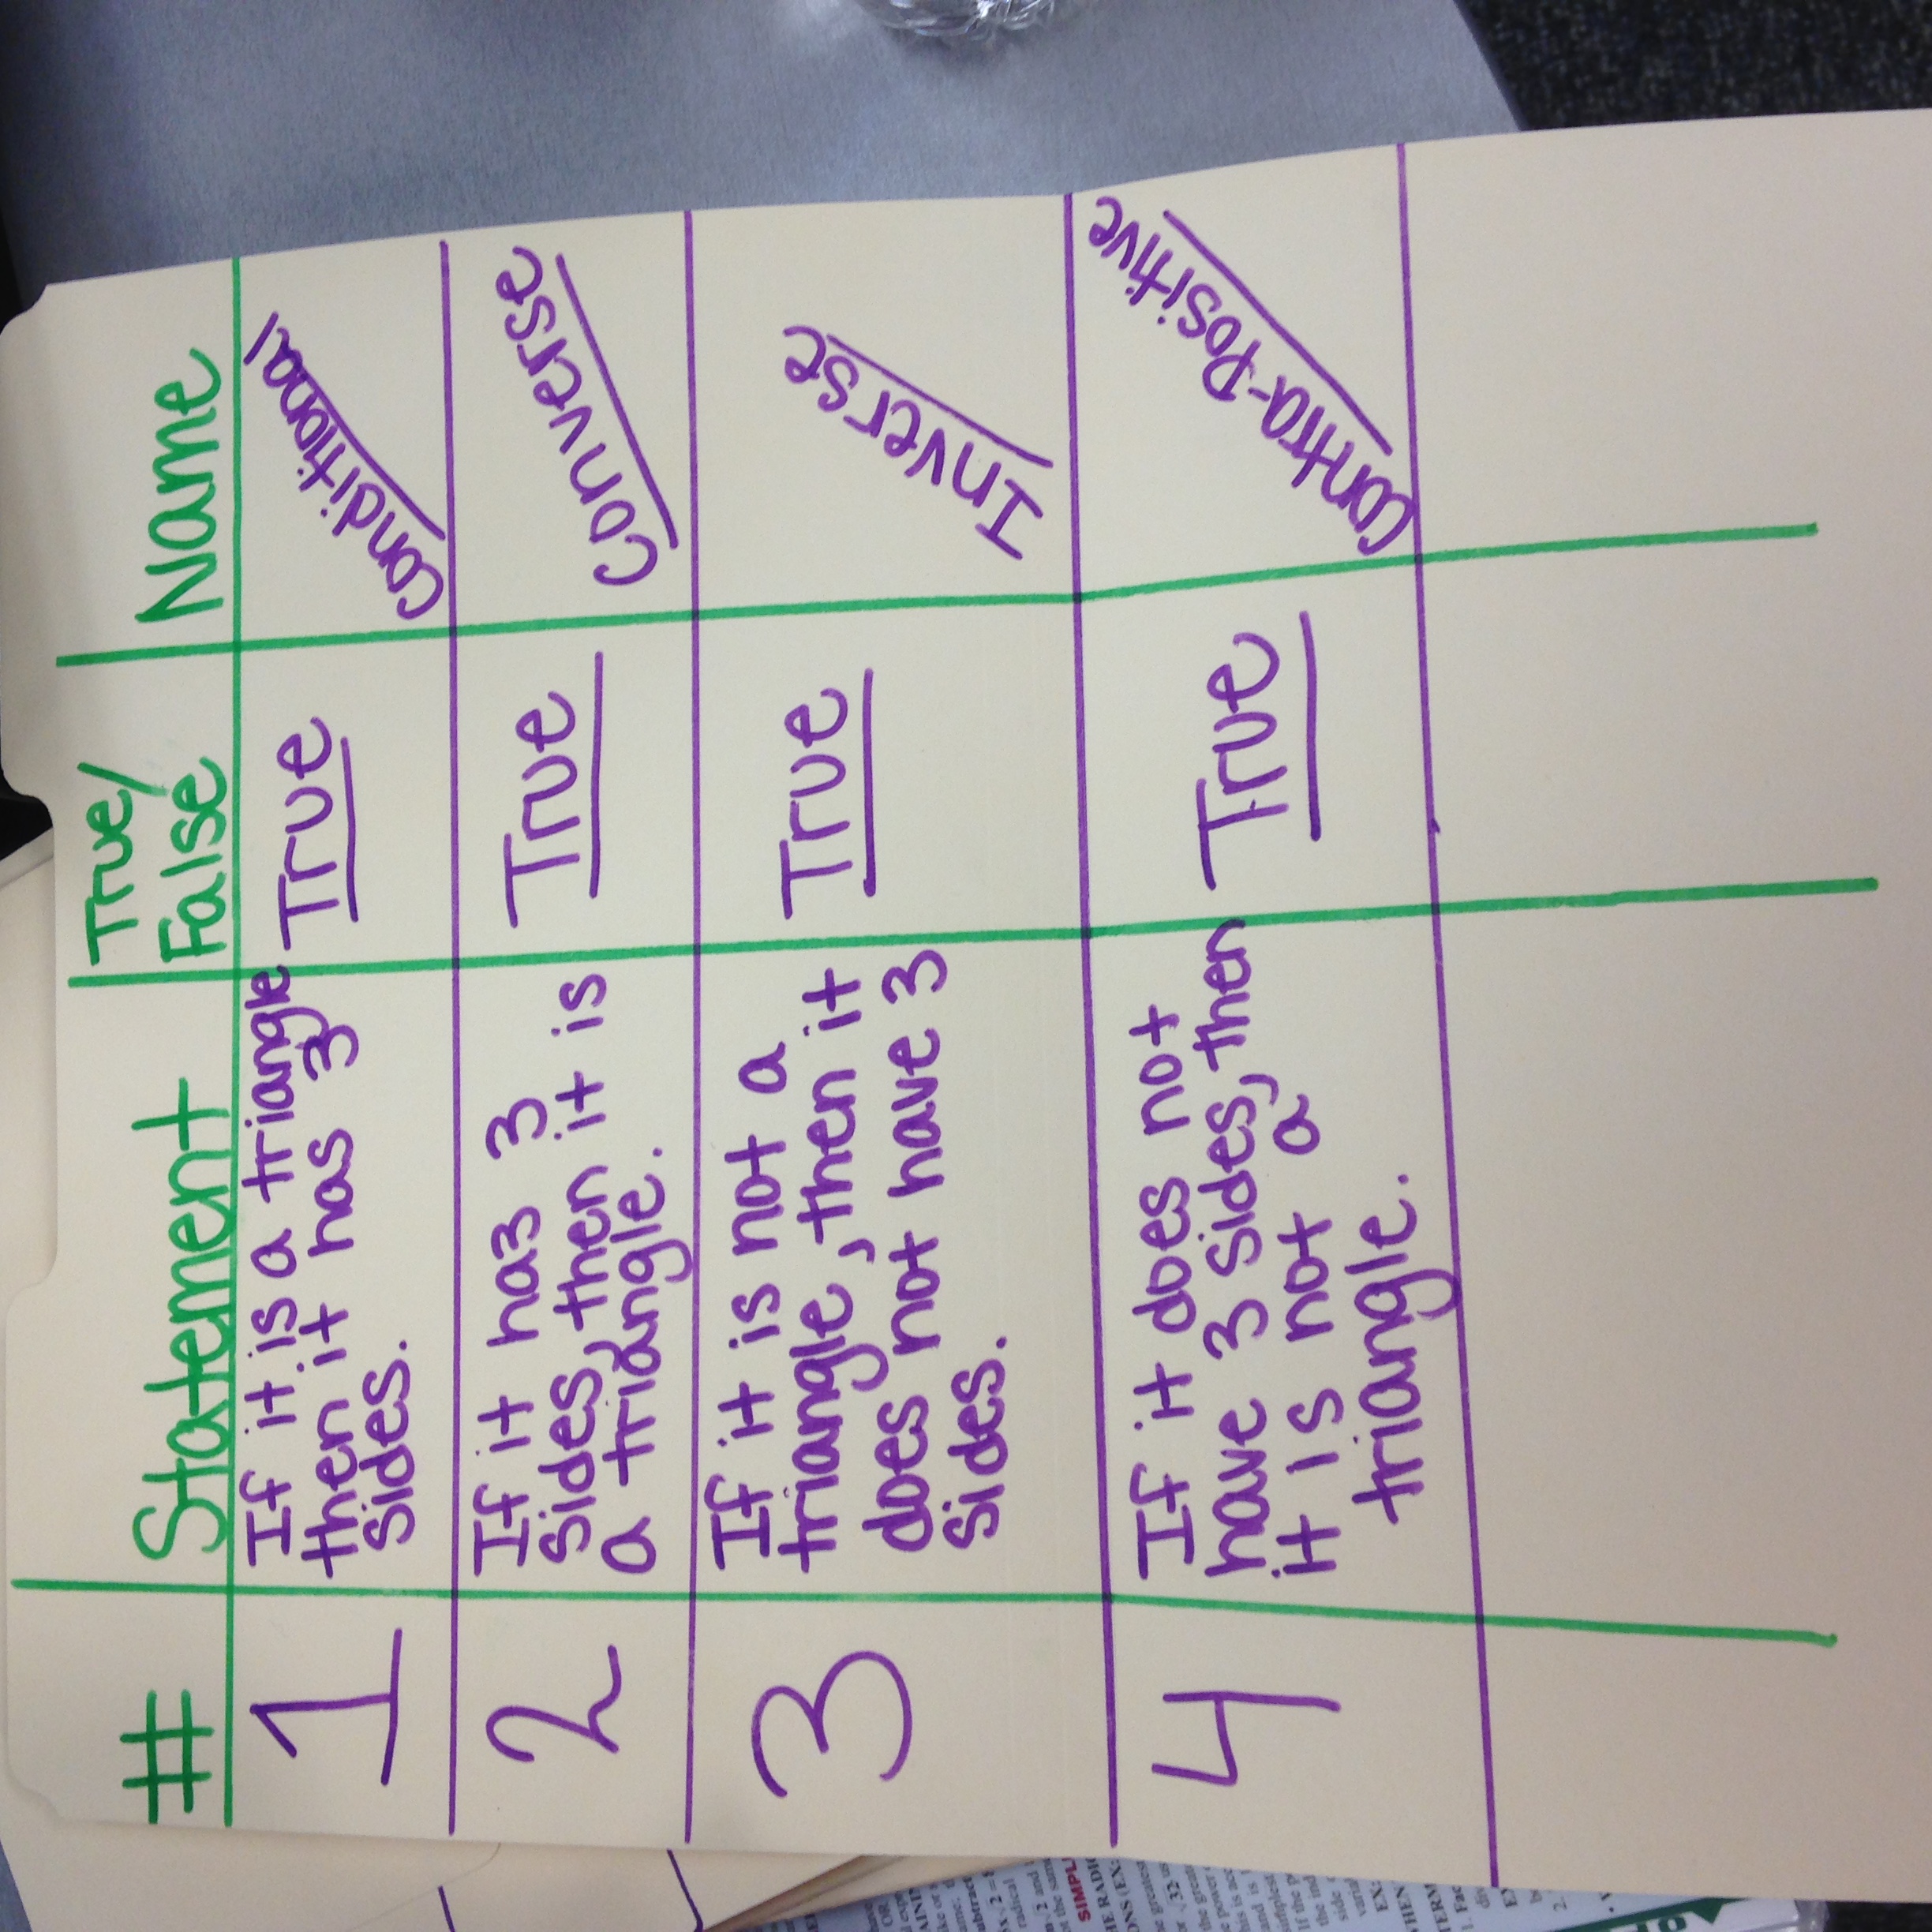 # Statement True/ Name
False
1 If it is a triangle True Conditional
then it has 3
sides.
2 If it has 3 True Converse
sides, then it is
a triangle.
3 If it is not a True Inverse
triangle, then it
does not have 3
sides.
4 If it does not True Contra-Positive
have 3 sides, then
it is not a
triangle.
SIMPLI